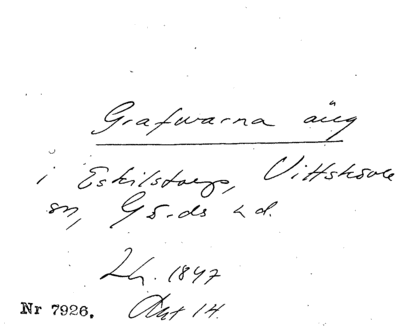 Grafwarna äng
i Eskilstorps, Vittskövle
sn, Gä.ds hd.
Lh. 1847
Nr 7926. Akt 14.